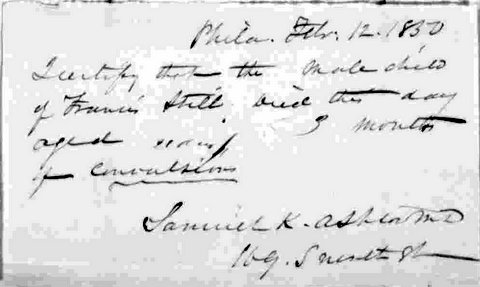 Phila. Feb. 12. 1850
I certify that the male child
of Francis Still, died this day
aged 9 months
of convulsions
Samuel K. Ashton MD
169. S